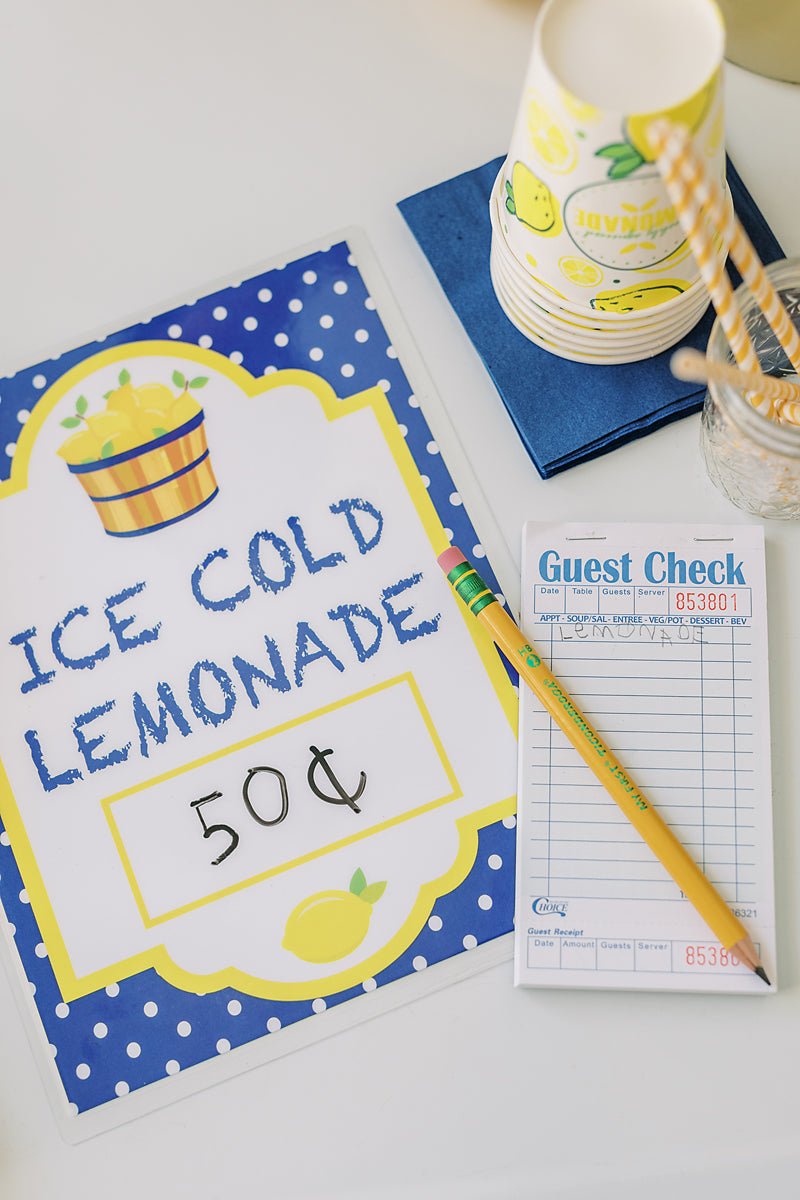 ICE COLD
LEMONADE
50¢
LEMONADE
Guest Check
Date Table Guests Server 853801
APPT - SOUP/SAL - ENTREE - VEG/POT - DESSERT - BEV
LEMONADE
MY FIRST TICONDEROGA
CHOICE
Guest Receipt
Date Amount Guests Server 85380